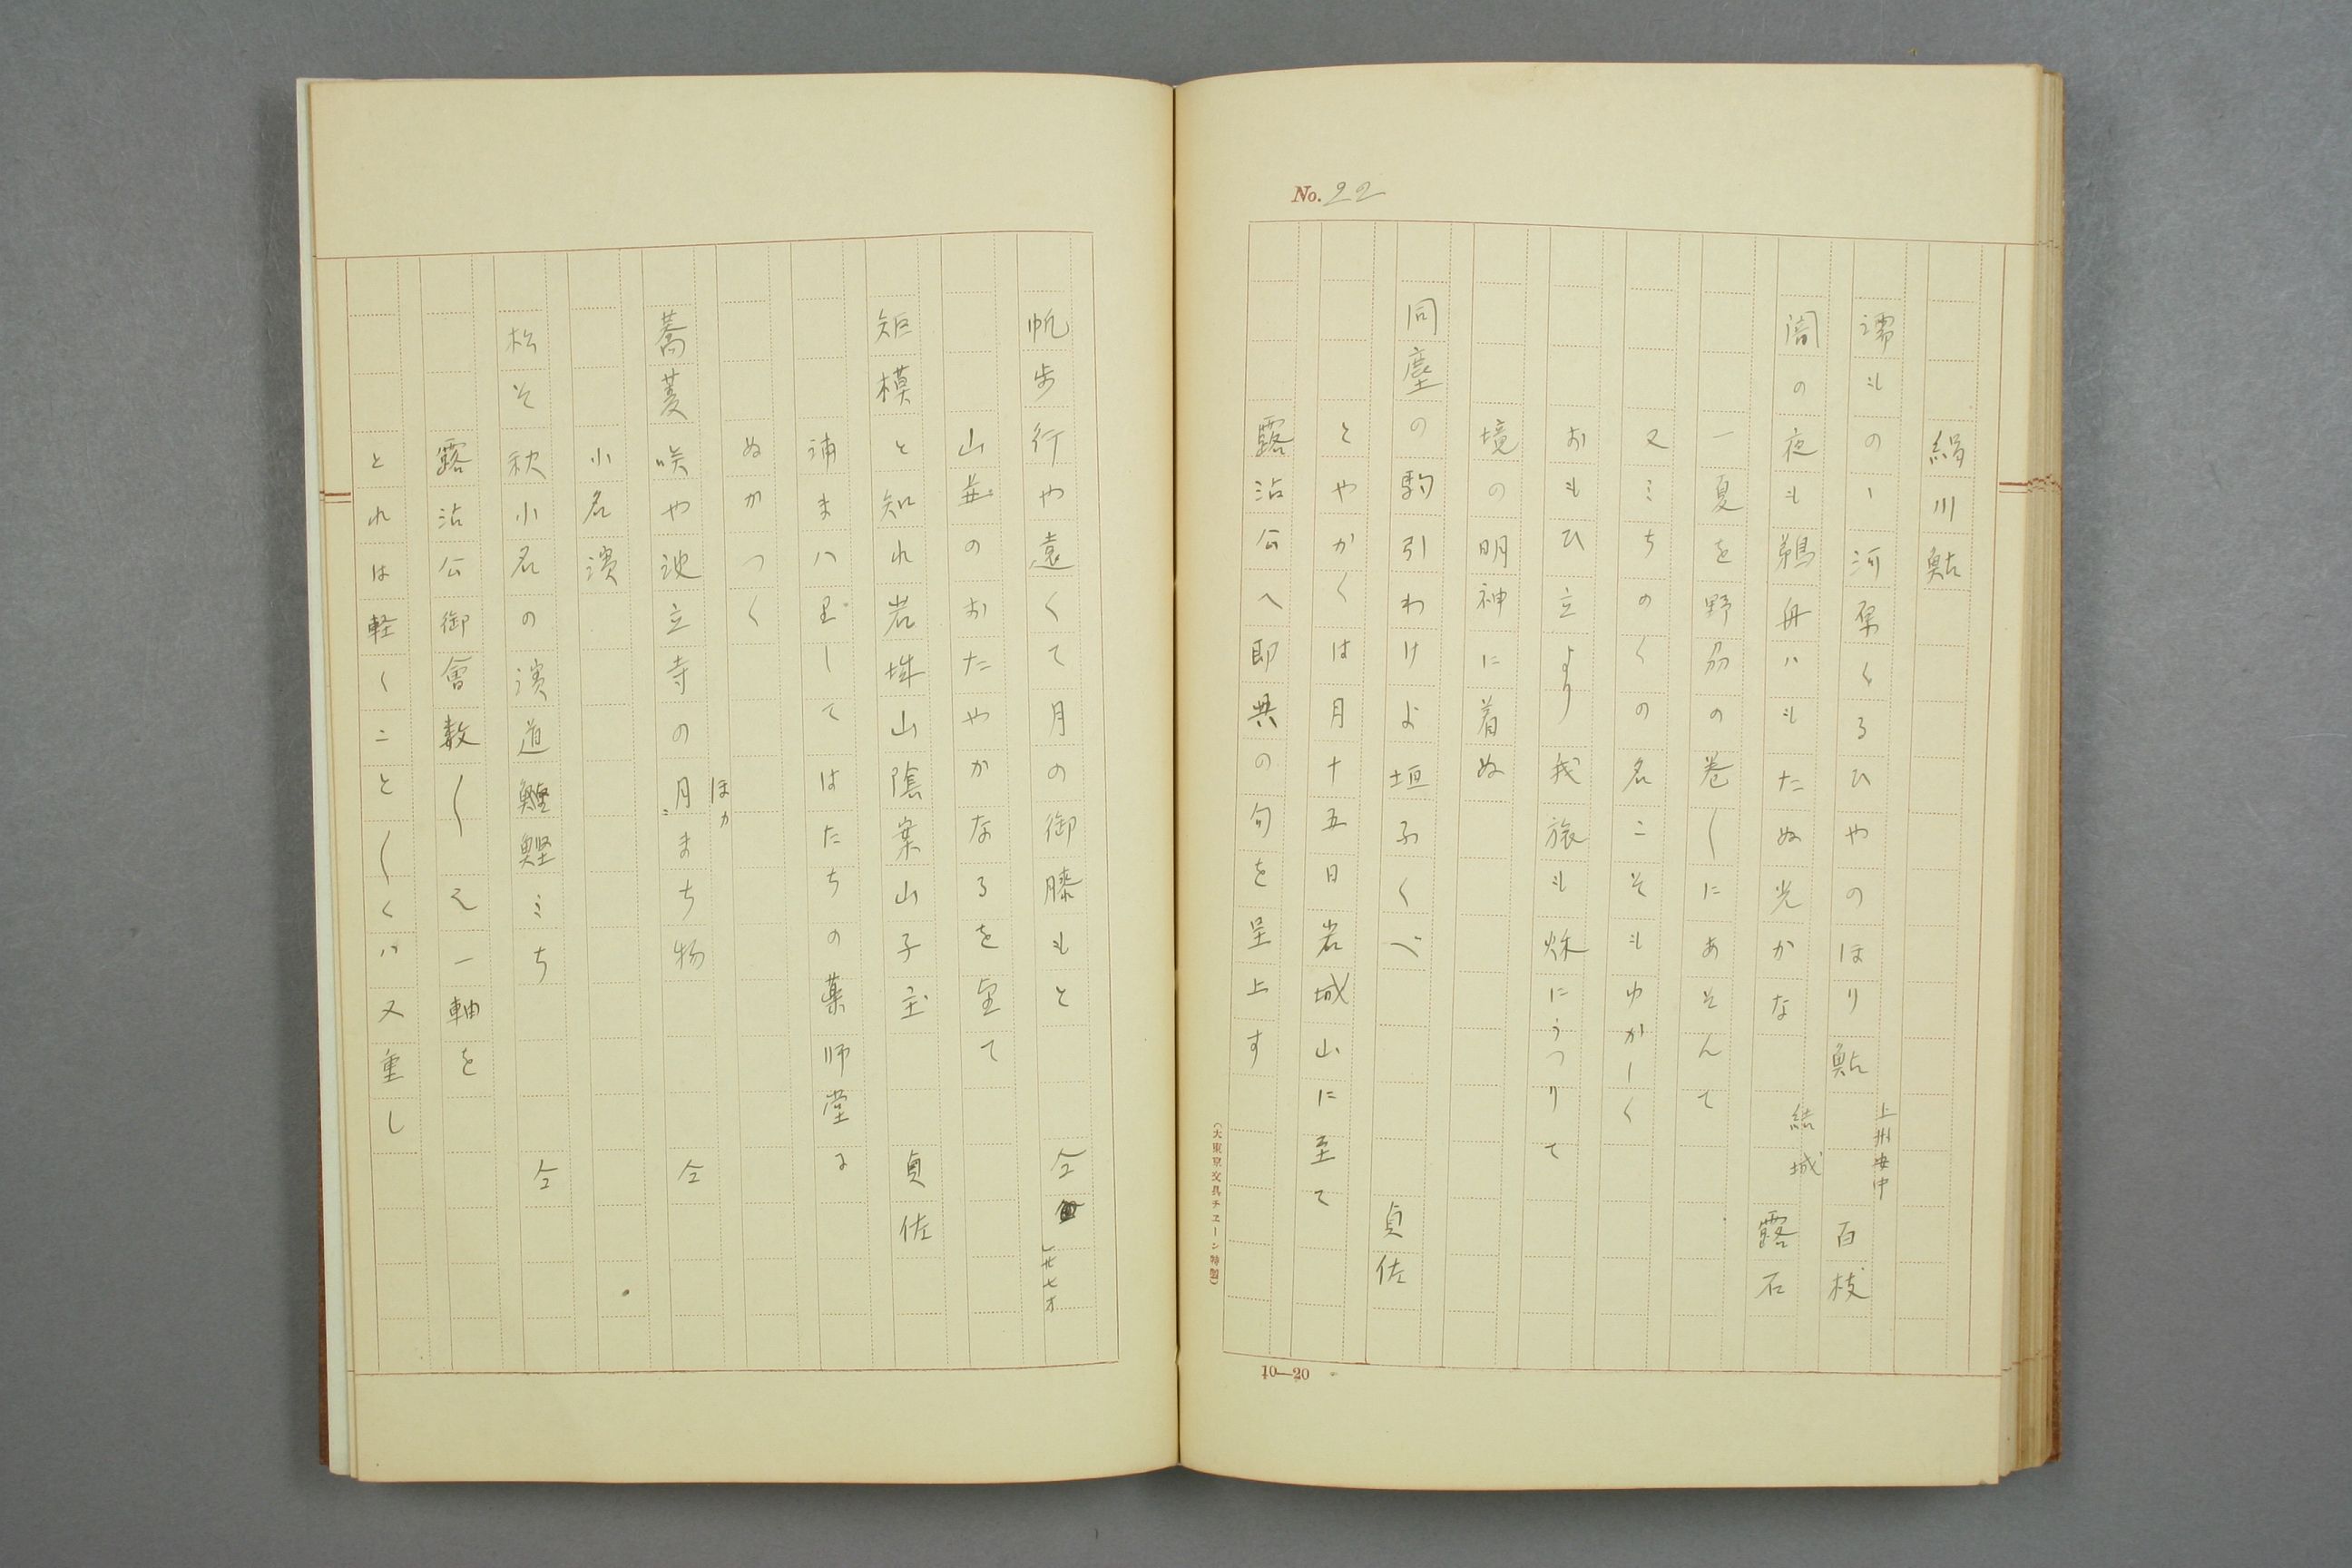 No. 22
絹川鮎
濡ものゝ河原くるひやのほり鮎 上州安中 百枝
闇の夜も鵜舟ハもたぬ光かな 結城 露石
一夏を野刕の巻〱にあそんて
又ミちのくの名こそもゆかしく
おもひ立より我旅も秌にうつりて
境の明神に着ぬ
同塵の駒引わけよ垣ふくべ 貞佐
とやかくは月十五日岩城山に至て
露沾公へ即興の句を呈上す
(大東京文具チエーン特製)
10—20
帆歩行や遠くて月の御膝もと 仝 」廿七才
山並のおたやかなるを望て
矩模と知れ岩城山陰案山子主 貞佐
浦まハりしてはたちの薬師堂に
ぬかつく
蕎麦咲や池立寺の月まち物 仝
ほか
小名濱
松そ秋小名の濱道鰹ミち 仝
露沾公御會数〱之一軸を
とれは軽くこと〱くハ又重し